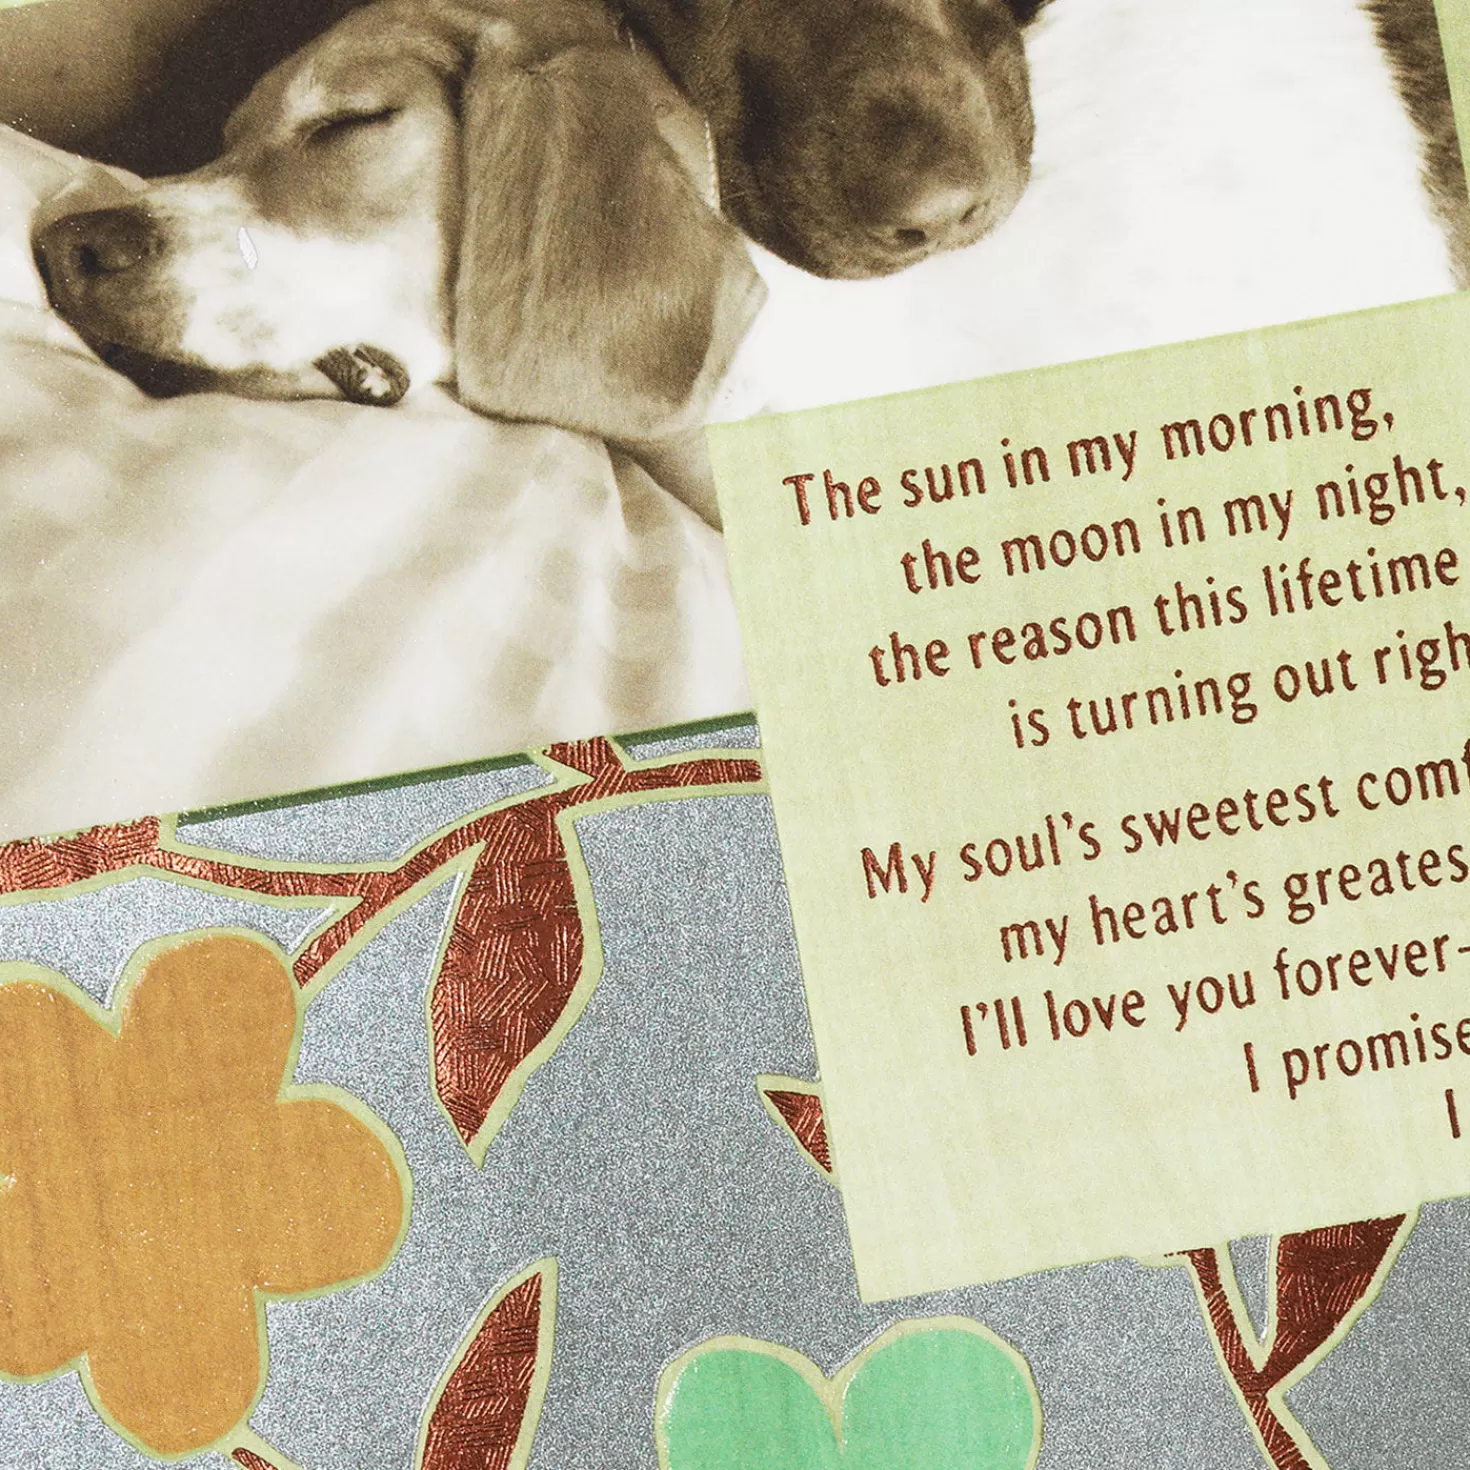 The sun in my morning,
the moon in my night,
the reason this lifetime
is turning out righ
My soul's sweetest comf
my heart's greates
I'll love you forever-
I promise
I